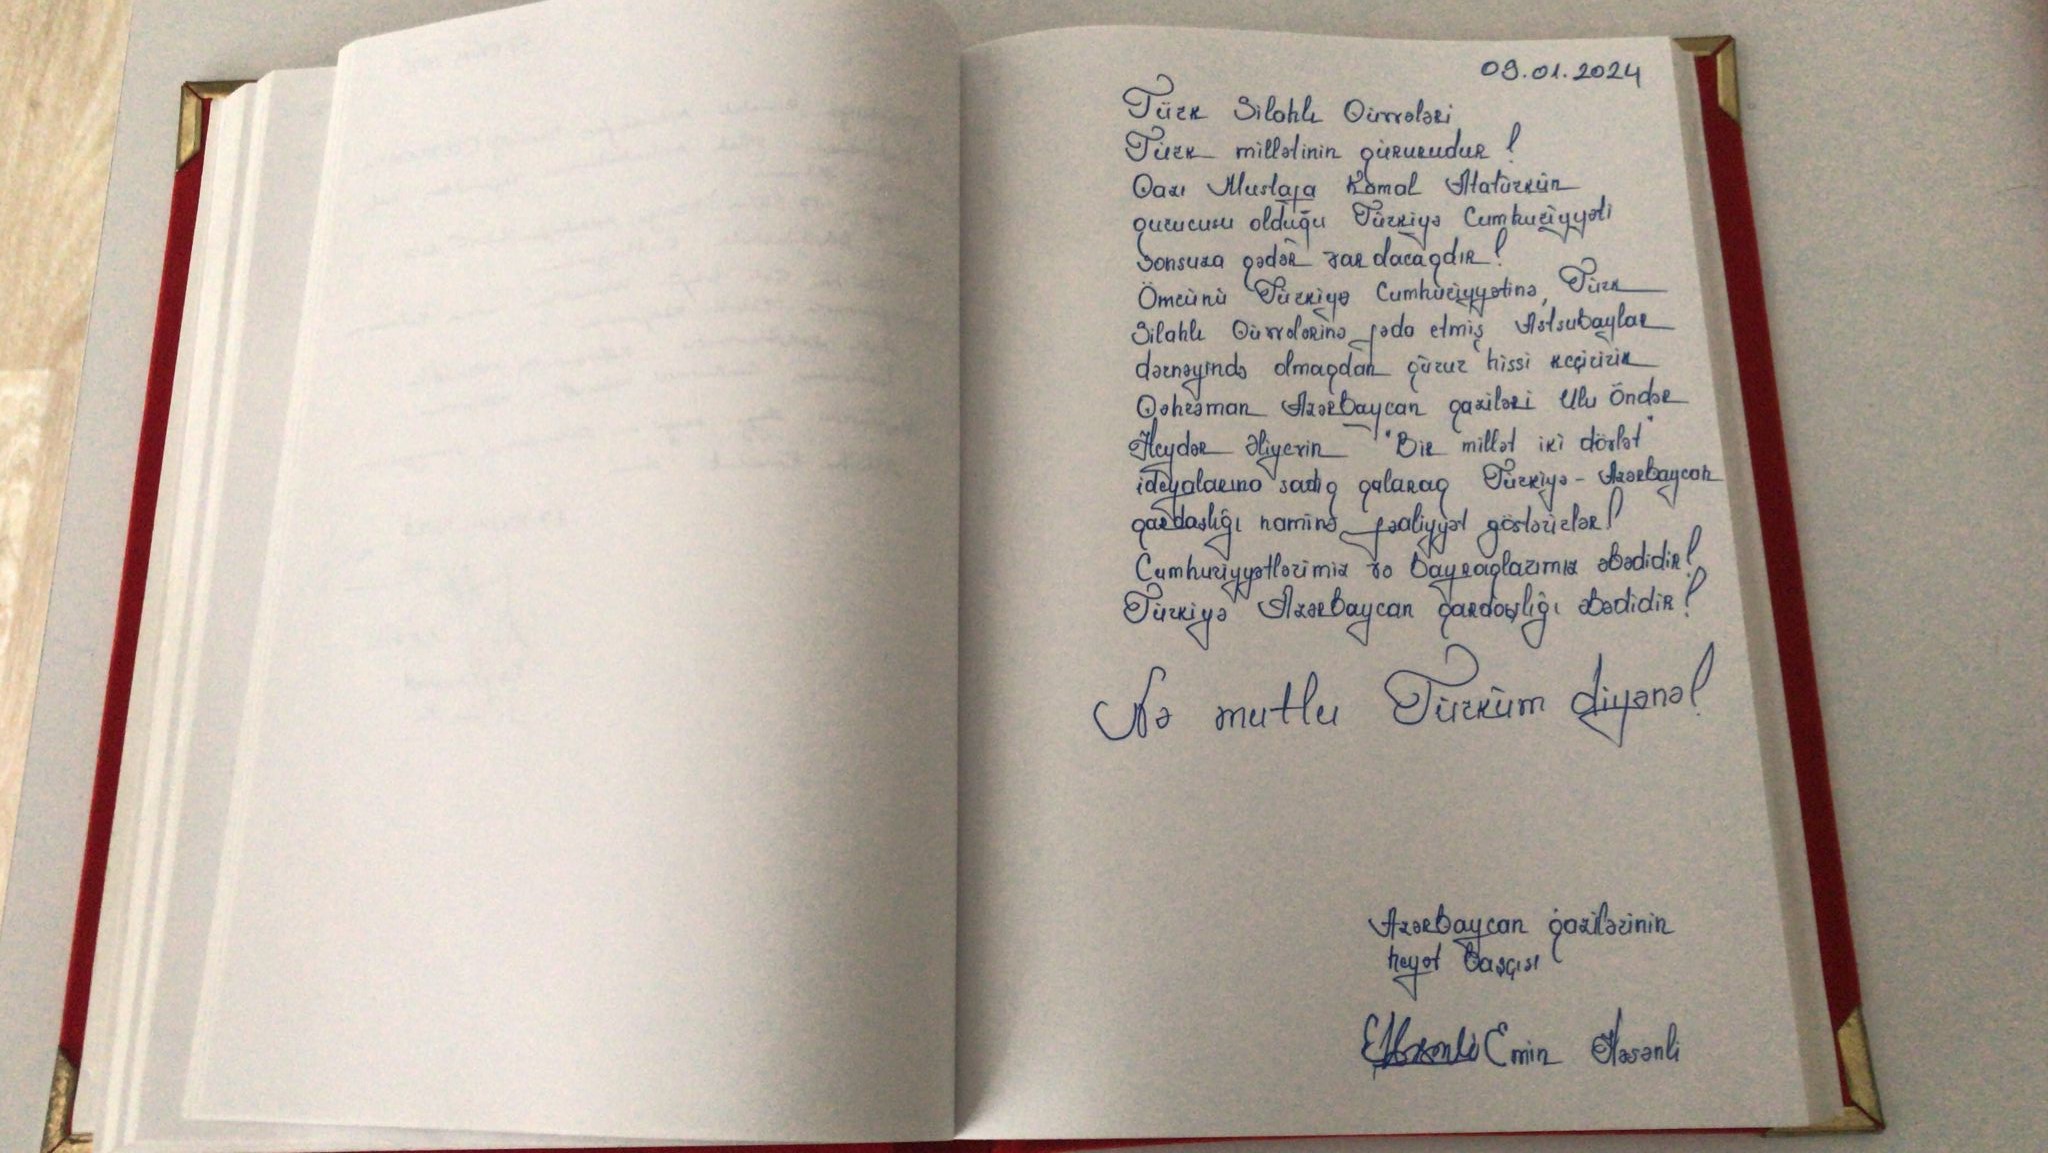 09.01.2024
Türk Silahlı Qüvvələri
Türk millətinin qürurudur!
Qazi Mustafa Kamal Atatürkün
qurucusu olduğu Türkiyə Cumhuriyyəti
sonsuza qədər var olacaqdır!
Ömrünü Türkiyə Cumhuriyyətinə, Türk
Silahlı Qüvvələrinə fəda etmiş Astsubaylar
dərnəyində olmaqdan qürur hissi keçiririk
Qəhrəman Azərbaycan qaziləri Ulu Öndər
Heydər Əliyevin "Bir millət iki dövlət"
ideyalarına sadiq qalaraq Türkiyə - Azərbaycan
qardaşlığı naminə fəaliyyət göstərirlər!
Cumhuriyyətlərimiz və bayraqlarımız əbədidir!
Türkiyə Azərbaycan qardaşlığı əbədidir!
Nə mutlu Türküm diyənə!
Azərbaycan qazilərinin
heyət başçısı
Emin Həsənli